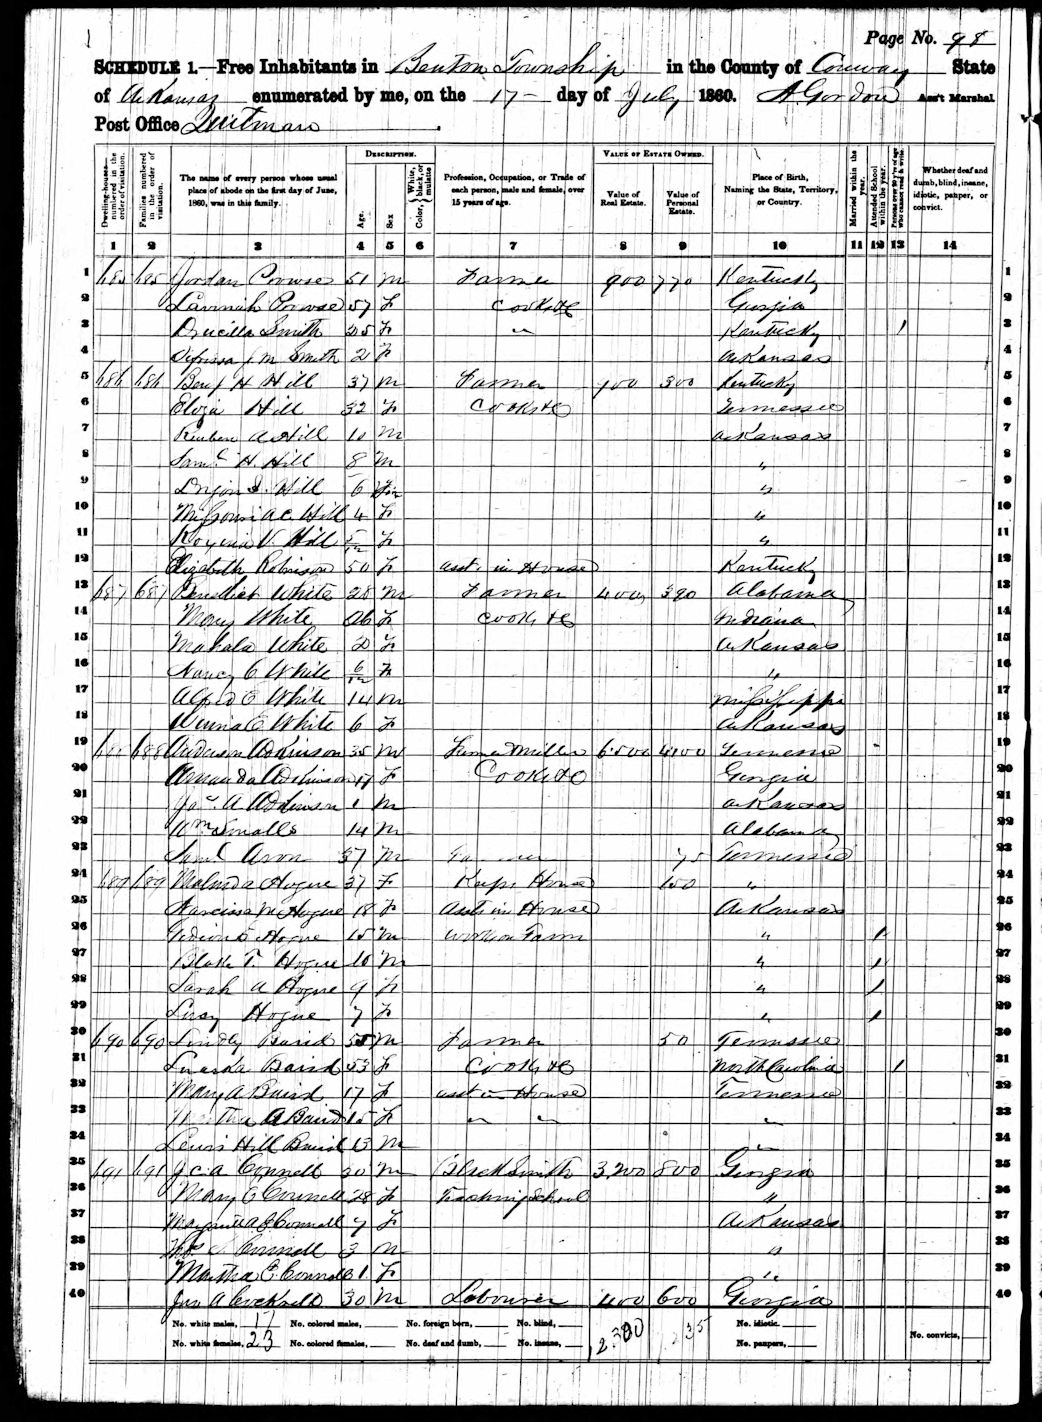 Page No. 98
SCHEDULE 1.—Free Inhabitants in Benton Township in the County of Conway State
of Arkansas enumerated by me, on the 17 day of July 1860. A Gordon Ass't Marshal
Post Office Quitman
Dwelling-houses—numbered in the order of visitation.
Families numbered in the order of visitation.
The name of every person whose usual place of abode on the first day of June, 1860, was in this family.
DESCRIPTION.
Age.
Sex
Color, {White, black, or mulatto
Profession, Occupation, or Trade of each person, male and female, over 15 years of age.
VALUE OF ESTATE OWNED.
Value of Real Estate.
Value of Personal Estate.
Place of Birth, Naming the State, Territory, or Country.
Married within the year.
Attended School within the year.
Persons over 20 y'rs of age who cannot read & write.
Whether deaf and dumb, blind, insane, idiotic, pauper, or convict.
1 2 3 4 5 6 7 8 9 10 11 12 13 14
1 685 685 Jordan Crowse 51 M Farmer 900 770 Kentucky 1
2 Crowse 57 F Georgia 2
3 Drucilla Smith F " Kentucky / 3
4 M Smith 2 F Arkansas 4
5 686 686 Benj H Hill 37 M Farmer 300 Kentucky 5
6 Eliza Hill 32 F Tennessee 6
7 Reuben A Hill 10 M Arkansas 7
8 Saml H. Hill 8 M " 8
9 Hill 6 " 9
10 Missouri A C Hill 4 F " 10
11 V Hill 5/12 F " 11
12 Elizabeth Robinson 50 F asst in House Kentucky 12
13 687 687 White 28 M Farmer 400 390 Alabama 13
14 Mary White F Indiana 14
15 Mahala White 2 F Arkansas 15
16 Nancy C White 6/12 F " 16
17 Alfred E White 14 M Mississippi 17
18 E White 6 F Arkansas 18
19 688 Anderson Adkinson 35 M Farmer & Miller 6500 4100 Tennessee 19
20 Amanda Adkinson 17 F Georgia 20
21 Jas. A Adkinson 1 M Arkansas 21
22 Wm Smalls 14 M Alabama 22
23 Saml 37 M Farmer 75 Tennessee 23
24 689 689 Malinda Hogue 37 F Keeps House 150 " 24
25 Narcissa M Hogue 18 F Asst in House Arkansas 25
26 Hogue 15 M work on Farm " / 26
27 Blake T. Hogue 10 M " / 27
28 Sarah A Hogue 9 F " / 28
29 Lucy Hogue 7 F " / 29
30 690 690 Baird M Farmer 50 Tennessee 30
31 Baird 53 F North Carolina / 31
32 Mary A Baird 17 F asst in House Tennessee 32
33 Martha A Baird 15 F " " " 33
34 Lewis Hill Baird 13 M " 34
35 691 691 J C A Connell 30 M Blacksmith 3,200 800 Georgia 35
36 Mary C Connell 28 F Teaching School " 36
37 Margarett A Connell 7 F Arkansas 37
38 Thos Connell 3 M " 38
39 Martha E. Connell 1 F " 39
40 Jas A Cocknell 30 M Labourer 400 600 Georgia 40
No. white males, 17 No. colored males, No. foreign born, No. blind, No. idiotic,
No. white females, 23 No. colored females, No. deaf and dumb, No. insane, No. paupers, No. convicts,